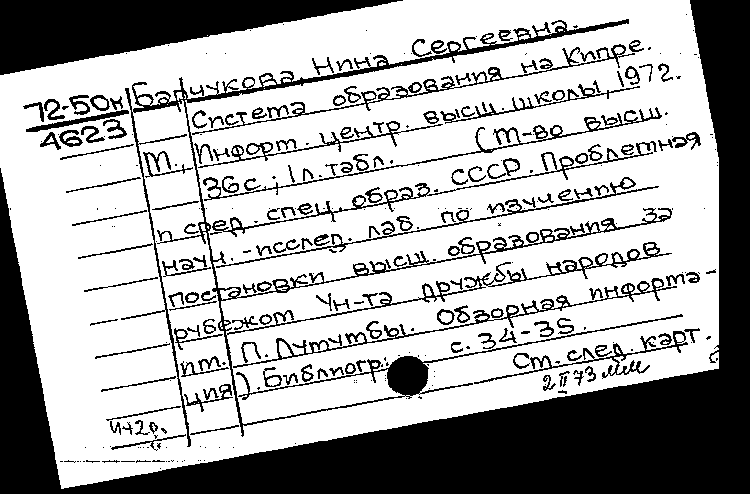 72-50к Барчукова, Нина Сергеевна.
4623 Система образования на Кипре.
М., Информ. центр. высш. школы, 1972.
36 с.; 1 л. табл. (М-во высш.
и сред. спец. образ. СССР. Проблемная
науч.-исслед. лаб. по изучению
постановки высш. образования за
рубежом Ун-та дружбы народов
им. П. Лумумбы. Обзорная информа-
ция). Библиогр.: с. 34-35.
См. след. карт.
2 II 73 мм